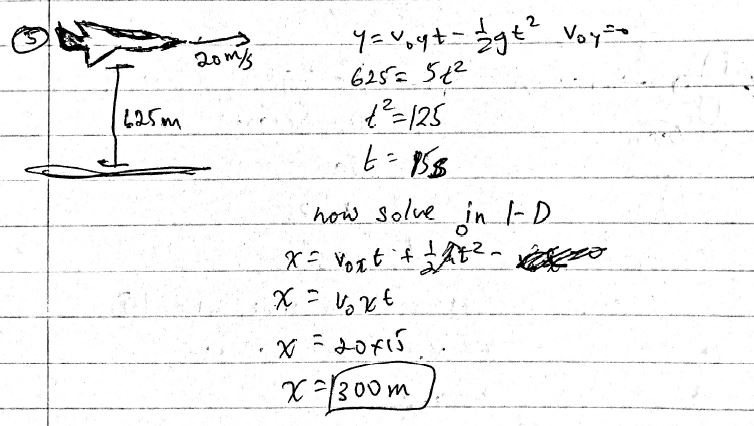 ⑤
20 m/s
625m
y = v₀yt - ½gt² v₀y=0
625 = 5t²
t² = 125
t = 15s
now solve in 1-D
0
x = v₀xt + ½at² -
x = v₀xt
x = 20×15
x = 300m